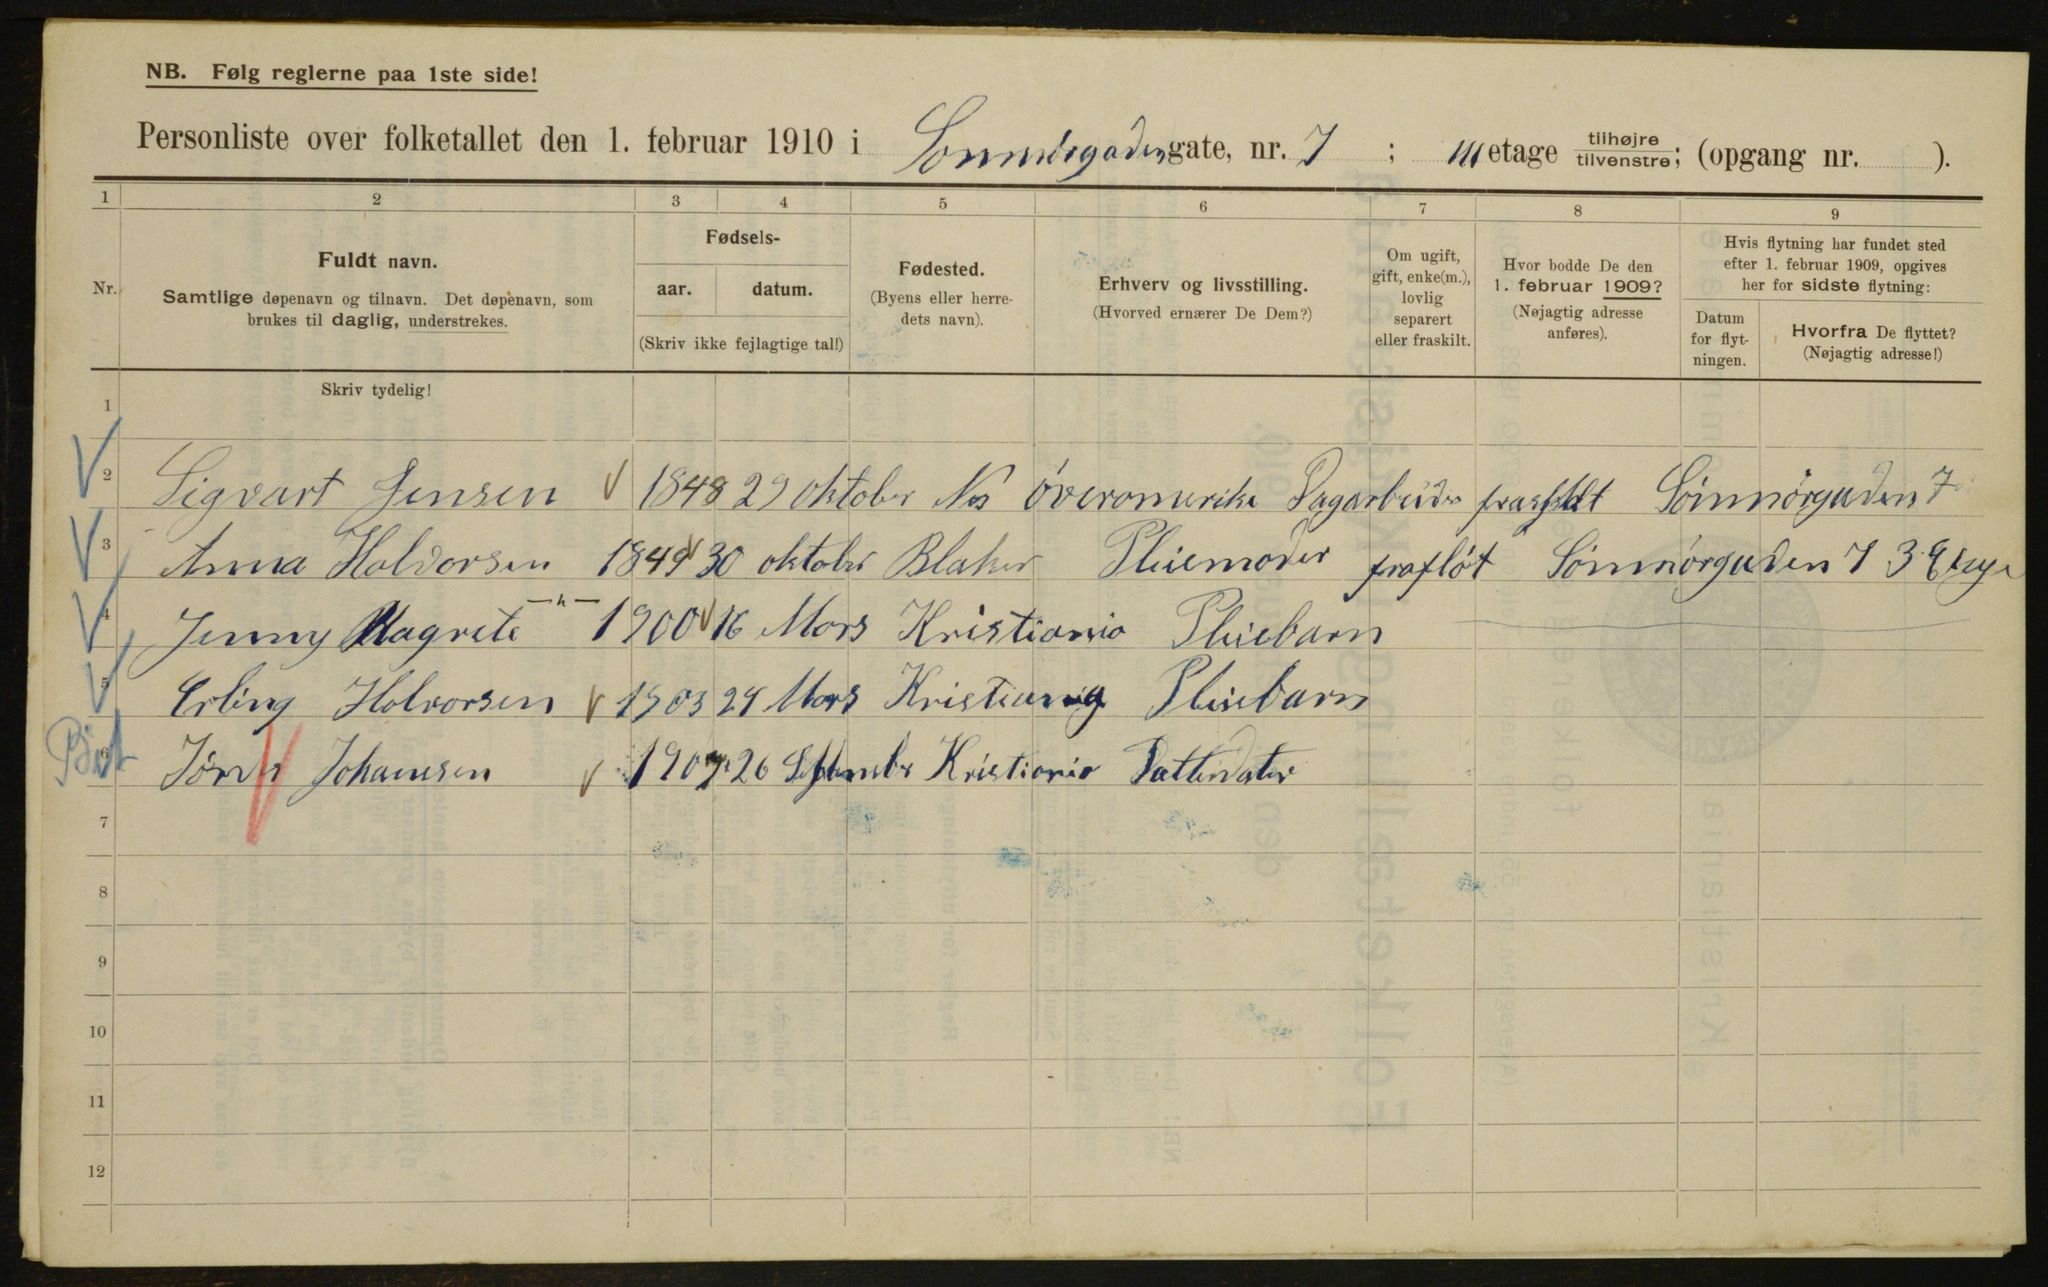 NB. Følg reglerne paa 1ste side!
Personliste over folketallet den 1. februar 1910 i Sonmørgaden gate, nr. 7 ; III etage tilhøjre tilvenstre; (opgang nr. ).
1 2 3 4 5 6 7 8 9
Nr.
Fuldt navn.
Samtlige døpenavn og tilnavn. Det døpenavn, som
brukes til daglig, understrekes.
Fødsels-
aar. datum.
(Skriv ikke fejlagtige tal!)
Fødested.
(Byens eller herre-
dets navn).
Erhverv og livsstilling.
(Hvorved ernærer De Dem?)
Om ugift,
gift, enke(m.),
lovlig
separert
eller fraskilt.
Hvor bodde De den
1. februar 1909?
(Nøjagtig adresse
anføres).
Hvis flytning har fundet sted
efter 1. februar 1909, opgives
her for sidste flytning:
Datum
for flyt-
ningen.
Hvorfra De flyttet?
(Nøjagtig adresse!)
Skriv tydelig!
1
2 Sigvart Jensen 1848 29 oktober Nes överomerike Dagarbeider Sönmörgaden 7
3 Anna Halvorsen 1849 30 oktober Blaker Pleiemoder fraflöt Sönmörgaden 7 3 Etage
4 Jenny Magrete -"- 1900 16 Mars Kristiania Pleiebarn
5 Erling Halvorsen 1903 24 Mars Kristiania Pleiebarn
6 Johansen 1907 26 September Kristiania Datterdater
7
8
9
10
11
12